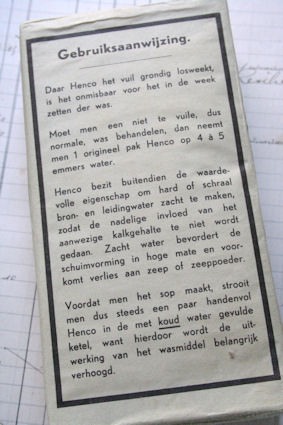 Gebruiksaanwijzing.
Daar Henco het vuil grondig losweekt,
is het onmisbaar voor het in de week
zetten der was.
Moet men een niet te vuile, dus
normale, was behandelen, dan neemt
men 1 origineel pak Henco op 4 à 5
emmers water.
Henco bezit buitendien de waarde-
volle eigenschap om hard of schraal
bron- en leidingwater zacht te maken,
zodat de nadelige invloed van het
aanwezige kalkgehalte te niet wordt
gedaan. Zacht water bevordert de
schuimvorming in hoge mate en voor-
komt verlies aan zeep of zeeppoeder.
Voordat men het sop maakt, strooit
men dus steeds een paar handenvol
Henco in de met koud water gevulde
ketel, want hierdoor wordt de uit-
werking van het wasmiddel belangrijk
verhoogd.